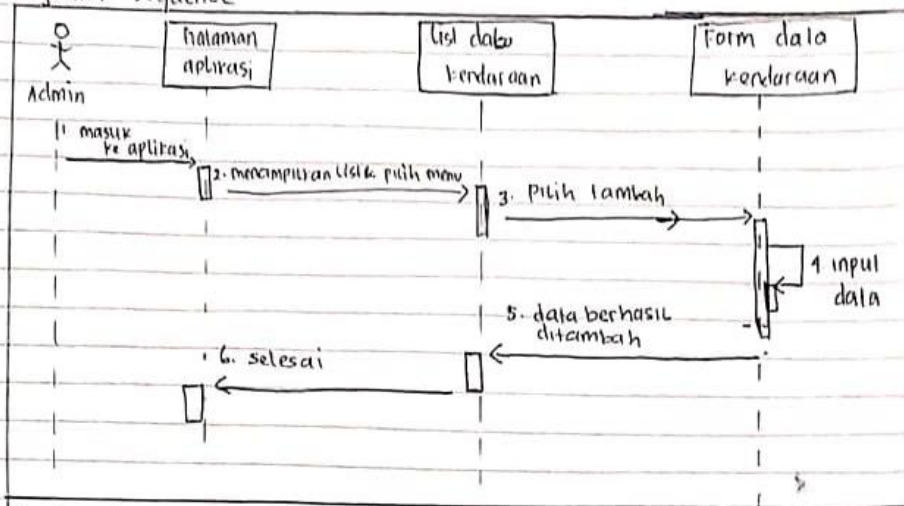 Halaman
aplikasi
List data
kendaraan
Form data
kendaraan
Admin
1 masuk
ke aplikasi
2. menampilkan list & pilih menu
3. Pilih tambah
4 input
data
5. data berhasil
ditambah
6. selesai